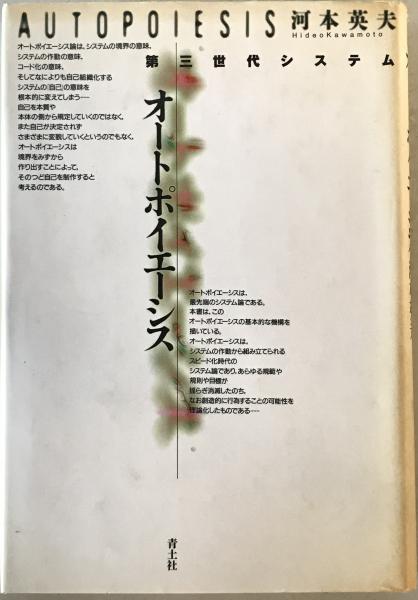 AUTOPOIESIS 河本英夫
HideoKawamoto
第三世代システム
オートポイエーシス論は、システムの境界の意味、
システムの作動の意味、
コード化の意味、
そしてなによりも自己組織化する
システムの「自己」の意味を
根本的に変えてしまう……
自己を本質や
本体の側から規定していくのではなく、
また自己が決定されず
さまざまに変貌していくというのでもなく、
オートポイエーシスは
境界をみずから
作り出すことによって、
そのつど自己を制作すると
考えるのである。
オートポイエーシス
オートポイエーシスは、
最先端のシステム論である。
本書は、この
オートポイエーシスの基本的な機構を
描いている。
オートポイエーシスは、
システムの作動から組み立てられる
スピード化時代の
システム論であり、あらゆる規範や
規則や目標が
揺らぎ消滅したのち、
なお創造的に行為することの可能性を
理論化したものである……
青土社